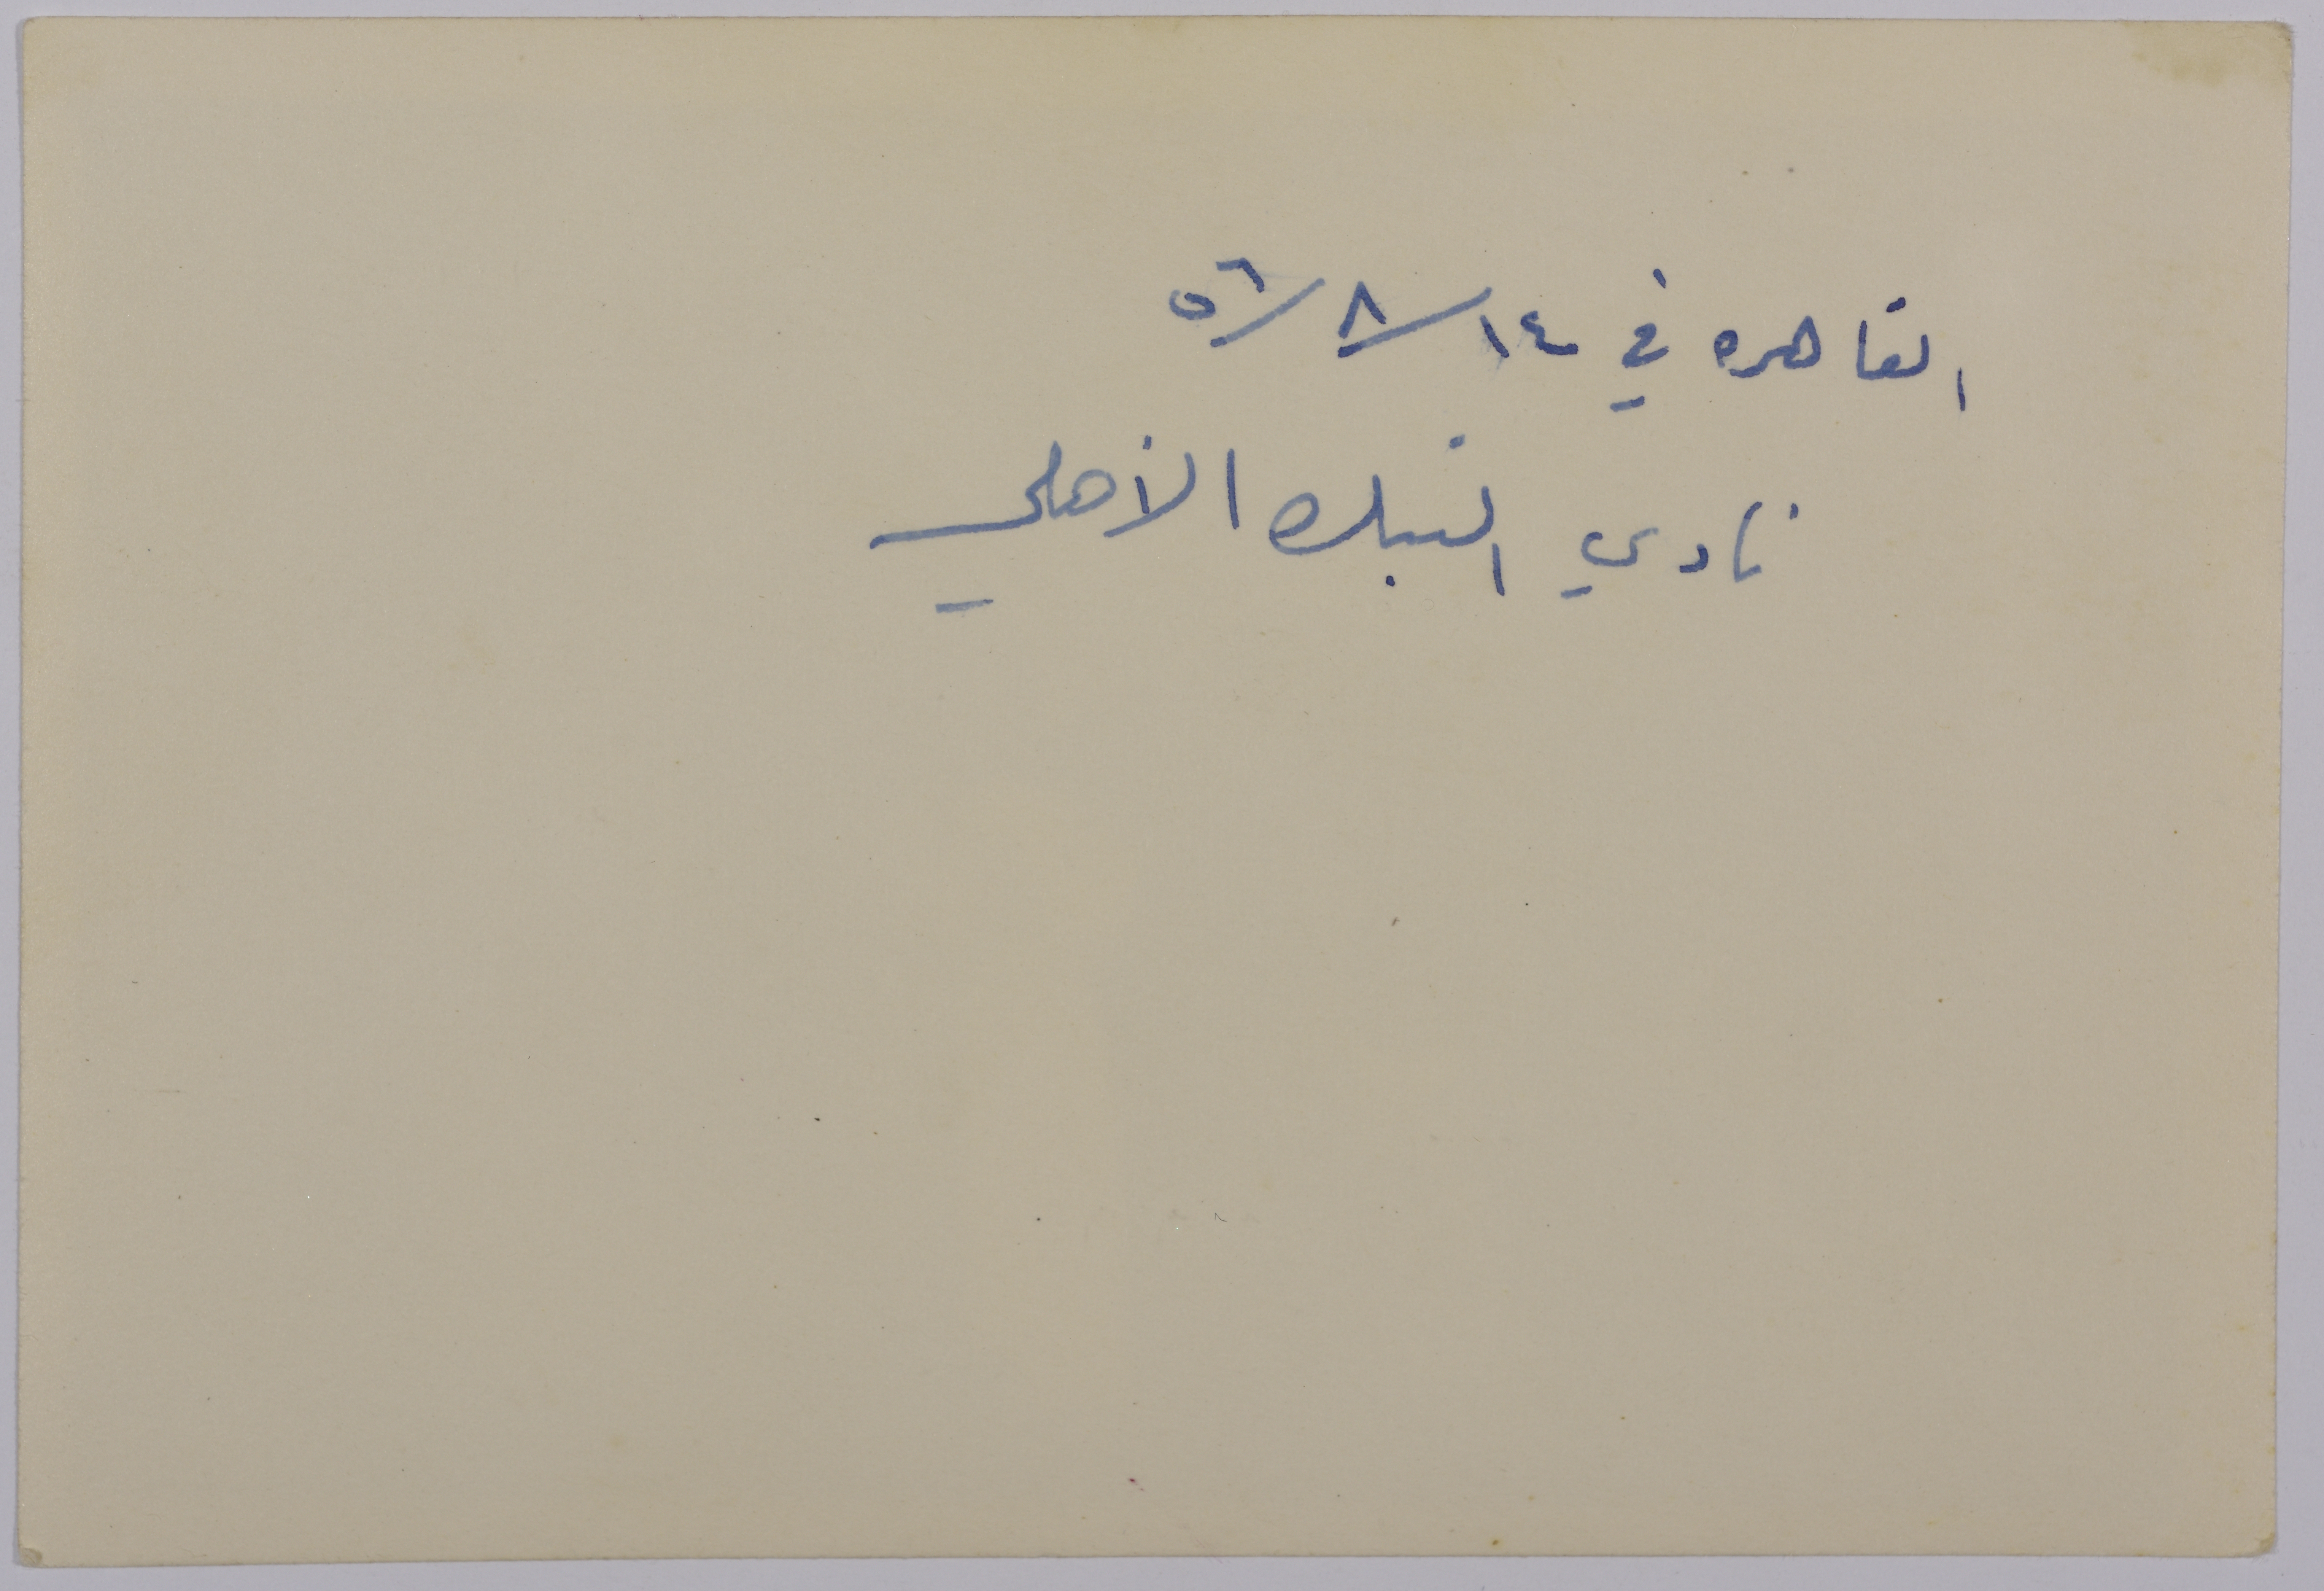 القاهره في ١٤/٨/٥٦
نادي البنك الأهلي